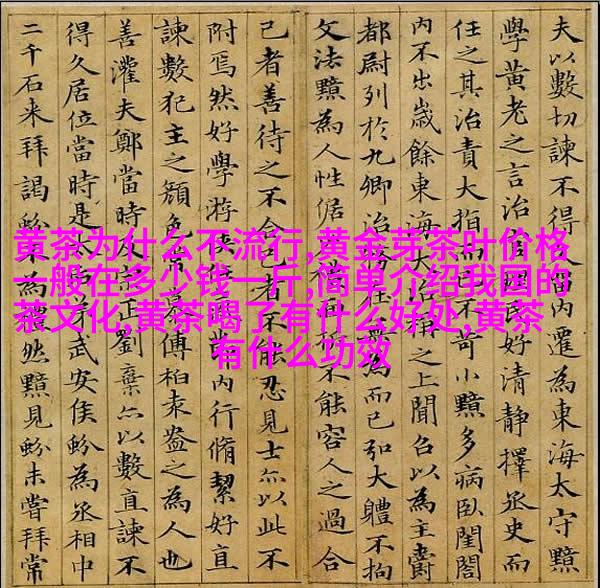 黄茶为什么不流行,黄金芽茶叶价格
一般在多少钱一斤,简单介绍我国的
茶文化,黄茶喝了有什么好处,黄茶
有什么功效
夫以數切諫不得留內遷為東海太守黯
學黃老之言治官民好清靜擇丞史而
任之其治責大指而已不苛小黯多病臥閨閤
內不出歲餘東海大治之上聞召以為主爵
都尉列於九卿治務在為而已弘大體不拘
文法黯為人性倨禮面不能容人之過合
己者善待之不合己者不能忍見士亦以此不
附焉然好學游俠內行脩絜好直
諫數犯主之顏色常慕傅柏袁盎之為人也
善灌夫鄭當時及正劉棄亦以數直諫不
得久居位當時是太弟武安侯蚡為丞相中
二千石来拜謁蚡為然黯見蚡未嘗拜常